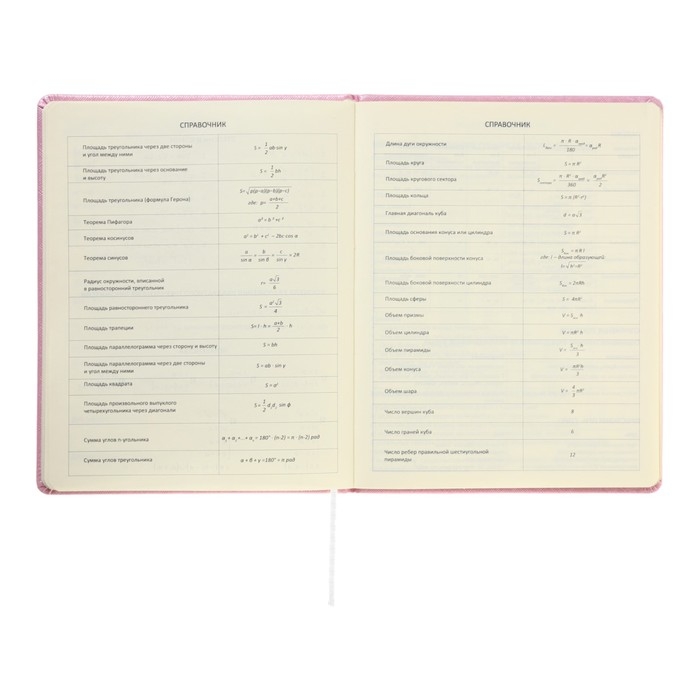 СПРАВОЧНИК
Площадь треугольника через две стороны
и угол между ними
S = 1/2 ab sin γ
Площадь треугольника через основание
и высоту
S = 1/2 bh
Площадь треугольника (формула Герона)
S=√p(p-a)(p-b)(p-c)
где: p= a+b+c/2
Теорема Пифагора
a² = b² + c²
Теорема косинусов
a² = b² + c² - 2bc cos α
Теорема синусов
a/sin α = b/sin β = c/sin γ = 2R
Радиус окружности, вписанной
в равносторонний треугольник
r= a√3/6
Площадь равностороннего треугольника
S = a²√3/4
Площадь трапеции
S= l · h = a+b/2 · h
Площадь параллелограмма через сторону и высоту
S = bh
Площадь параллелограмма через две стороны
и угол между ними
S = ab · sin γ
Площадь квадрата
S = a²
Площадь произвольного выпуклого
четырехугольника через диагонали
S = 1/2 d₁d₂ sin φ
Сумма углов n-угольника
α₁ + α₂+... + αₙ = 180° · (n-2) = π · (n-2) рад
Сумма углов треугольника
α + β + γ =180° = π рад
СПРАВОЧНИК
Длина дуги окружности
Площадь круга
S = π R²
Площадь кругового сектора
Площадь кольца
S = π (R²-r²)
Главная диагональ куба
d = a√3
Площадь основания конуса или цилиндра
S = π R²
Площадь боковой поверхности конуса
Sбок = π R l
где: l – длина образующей
l=√h²+R²
Площадь боковой поверхности цилиндра
Sбок = 2πRh
Площадь сферы
S = 4πR²
Объем призмы
V = Sосн h
Объем цилиндра
V = πR² h
Объем пирамиды
V = Sосн h/3
Объем конуса
V = πR²h/3
Объем шара
V = 4/3 πR³
Число вершин куба
8
Число граней куба
6
Число ребер правильной шестиугольной
пирамиды
12